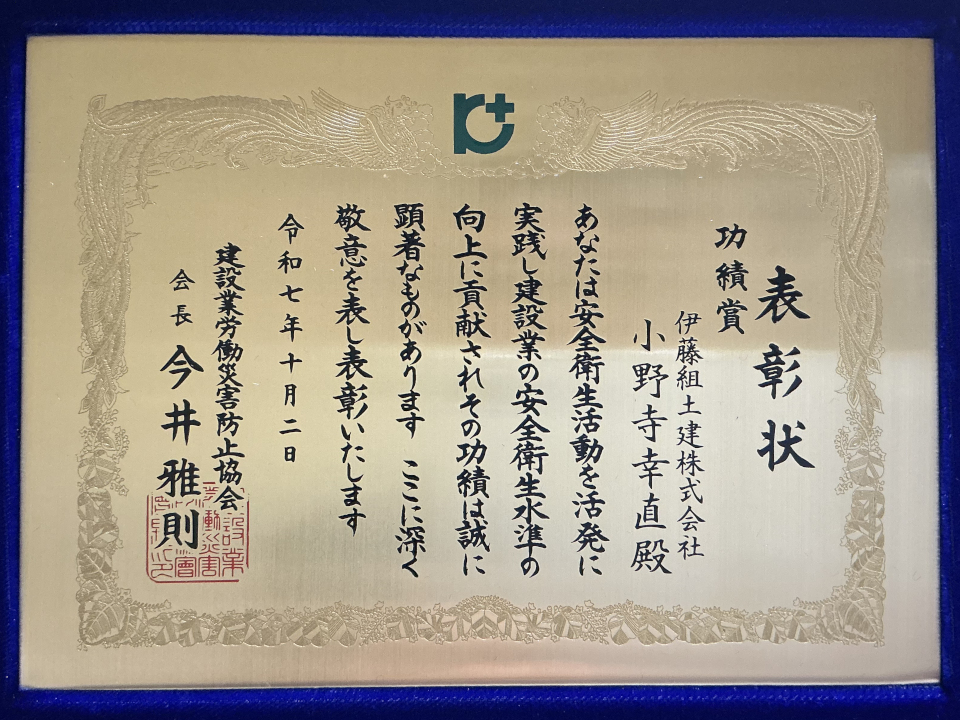 表彰状
功績賞
伊藤組土建株式会社
小野寺幸直殿
あなたは安全衛生活動を活発に
実践し建設業の安全衛生水準の
向上に貢献されその功績は誠に
顕著なものがあります ここに深く
敬意を表し表彰いたします
令和七年十月二日
建設業労働災害防止協会
会長 今井雅則